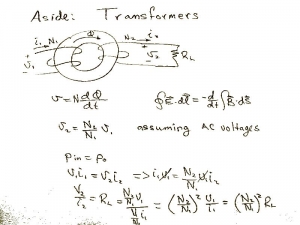 Aside: Transformers
i₁ N₁ Φ N₂ i₂
+ v₁ - + v₂ - R_L
v = N dΦ/dt ∮E·dl = -d/dt ∫B·ds
v₂ = N₂/N₁ v₁ assuming AC voltages
Pin = Po
v₁i₁ = v₂i₂ => i₁v₁ = N₂/N₁ v₁i₂
v₂/i₂ = R_L = (N₂/N₁ v₁)/(N₁/N₂ i₁) = (N₂/N₁)² v₁/i₁ = (N₂/N₁)² R_L